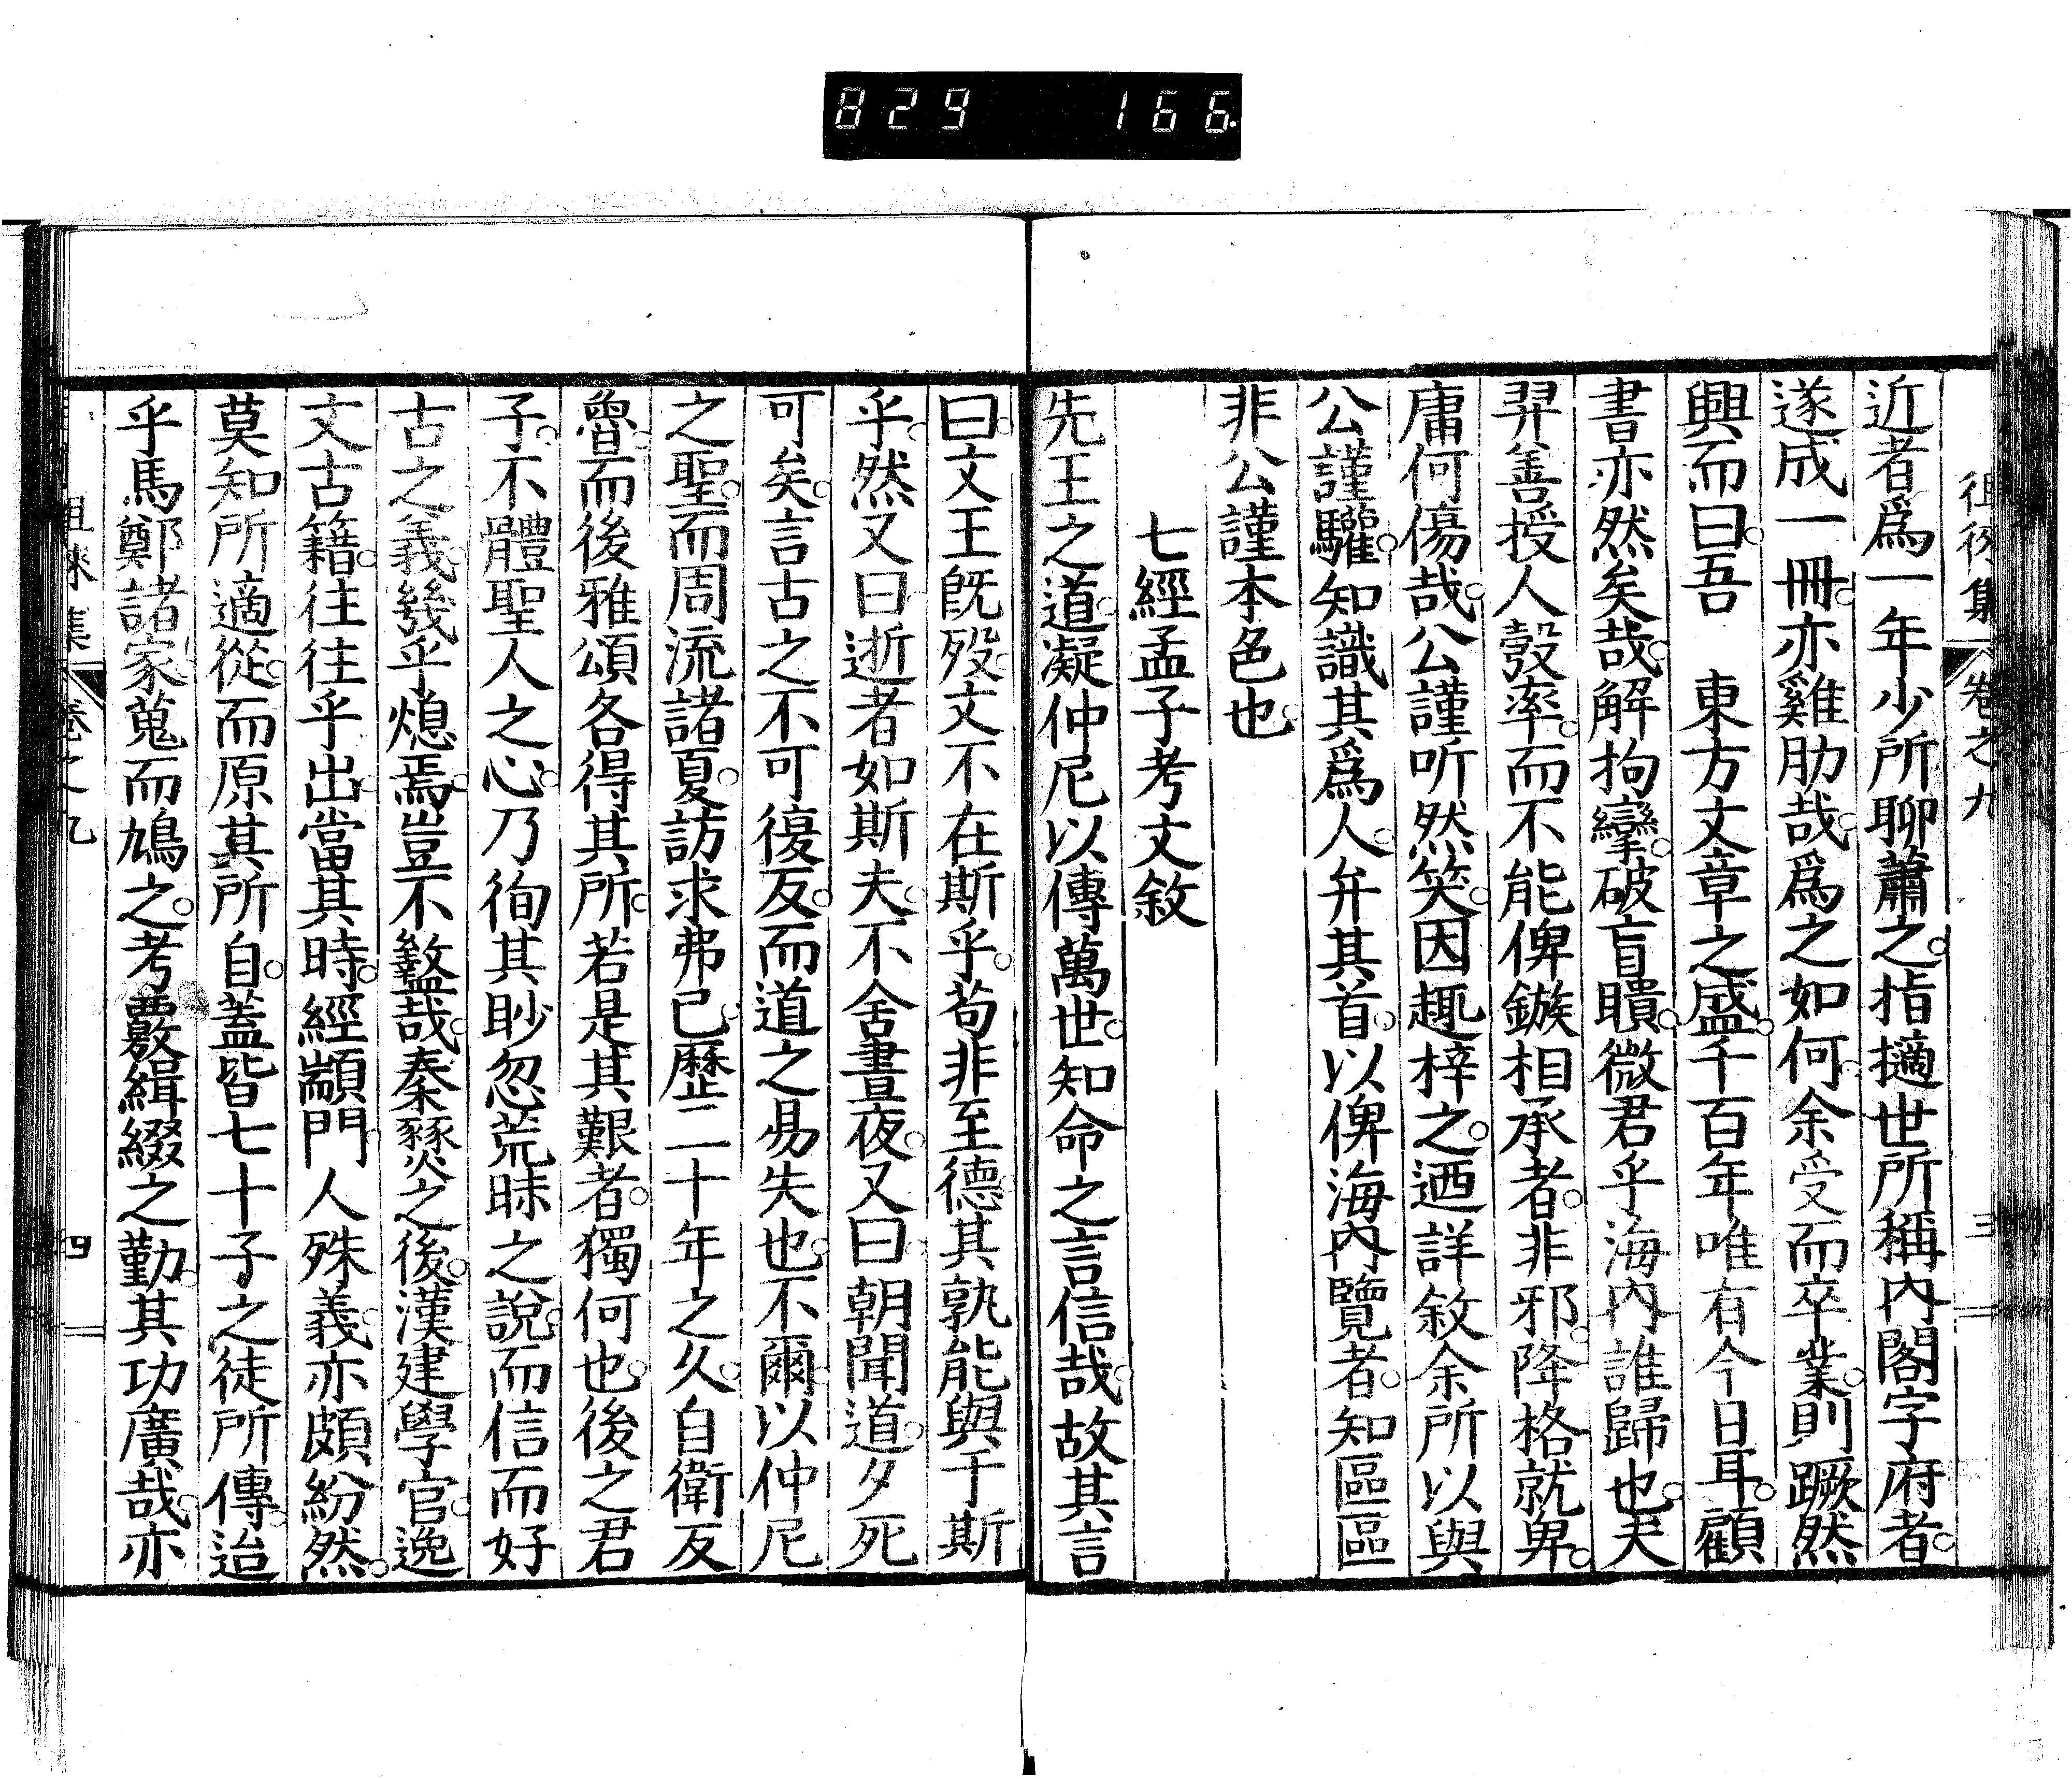 829 166.
徂徠集 卷之九 三
近者爲一年少所聊蕭之。指擿世所稱内閣字府者。
遂成一冊。亦雞肋哉。爲之如何。余受而卒業。則蹶然
興而曰。吾 東方文章之盛。千百年唯有今日耳。顧
書亦然矣哉。解拘攣。破盲聵。微君乎海内誰歸也。夫
羿善授人彀率。而不能俾鏃相承者。非邪。降格就卑。
庸何傷哉。公謹听然笑。因趣梓之。迺詳敘余所以與
公謹驩。知識其爲人。弁其首。以俾海内覽者。知區區
非公謹本色也。
七經孟子考文敘
先王之道。凝仲尼以傳萬世。知命之言信哉。故其言
曰。文王旣歿。文不在斯乎。苟非至德。其孰能與于斯
乎。然又曰。逝者如斯夫。不舍晝夜。又曰。朝聞道。夕死
可矣。言古之不可復反。而道之易失也。不爾。以仲尼
之聖。而周流諸夏。訪求弗已。歷二十年之久。自衛反
魯。而後雅頌各得其所。若是其艱者。獨何也。後之君
子。不體聖人之心。乃徇其眇忽荒昧之說。而信而好
古之義。幾乎熄焉。豈不盭哉。秦燹之後。漢建學官。逸
文古籍。往往乎出。當其時。經顓門。人殊義。亦頗紛然。
莫知所適從。而原其所自。蓋皆七十子之徒所傳。迨
乎馬鄭諸家。蒐而鳩之。考覈緝綴之勤。其功廣哉。亦
徂徠集 卷之九 四